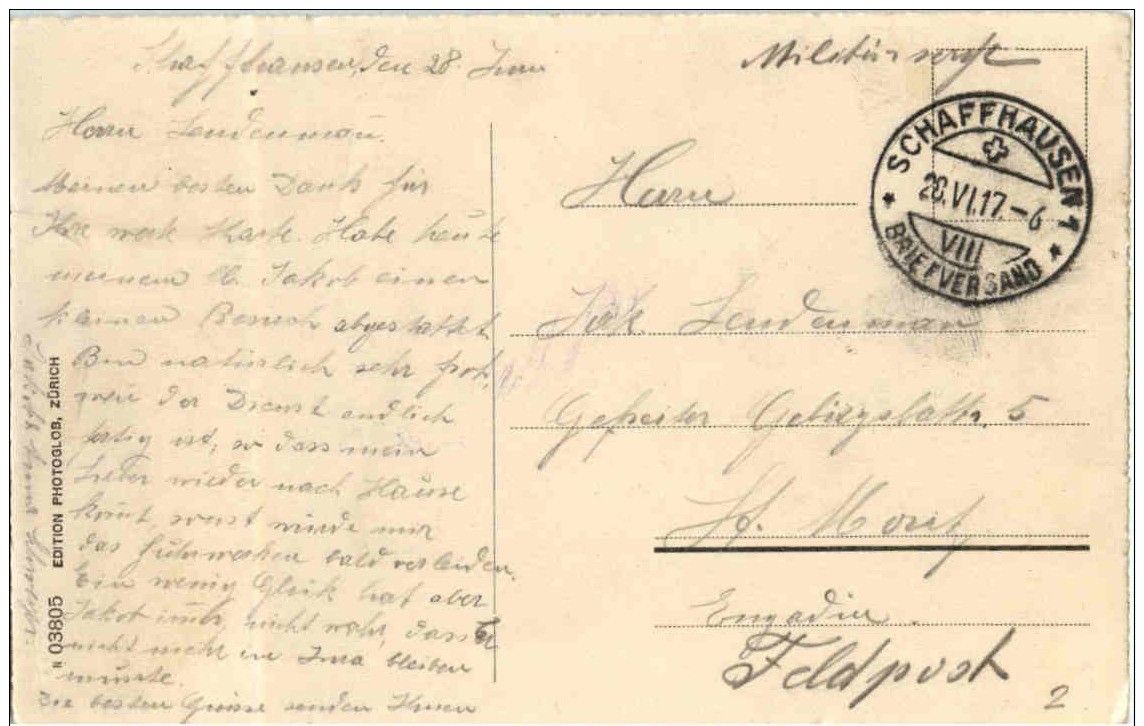 Schaffhausen, den 28. Juni
Herrn Lendenman.
Meinen besten Dank für
Ihre werte Karte. Habe heute
meinem lb. Jakob einen
kleinen Besuch abgestattet
Bin natürlich sehr froh,
wie der Dienst endlich
fertig ist, so dass mein
Lieber wieder nach Hause
kommt, sonst würde mir
das Fuhrwerken bald verleiden.
Ein wenig Glück hat aber
Jakob immer, nicht wahr, dass Er
nicht mehr in bleiben
musste.
Die besten Grüsse senden Ihnen
Jakob
No 03805 EDITION PHOTOGLOB, ZÜRICH
Militär
SCHAFFHAUSEN 1
28.VI.17-6
VIII
BRIEFVERSAND
Herrn
Jak. Lendenman
Gefreiter Gebirgsbattr. 5
St. Moritz
Engadin.
Feldpost
2